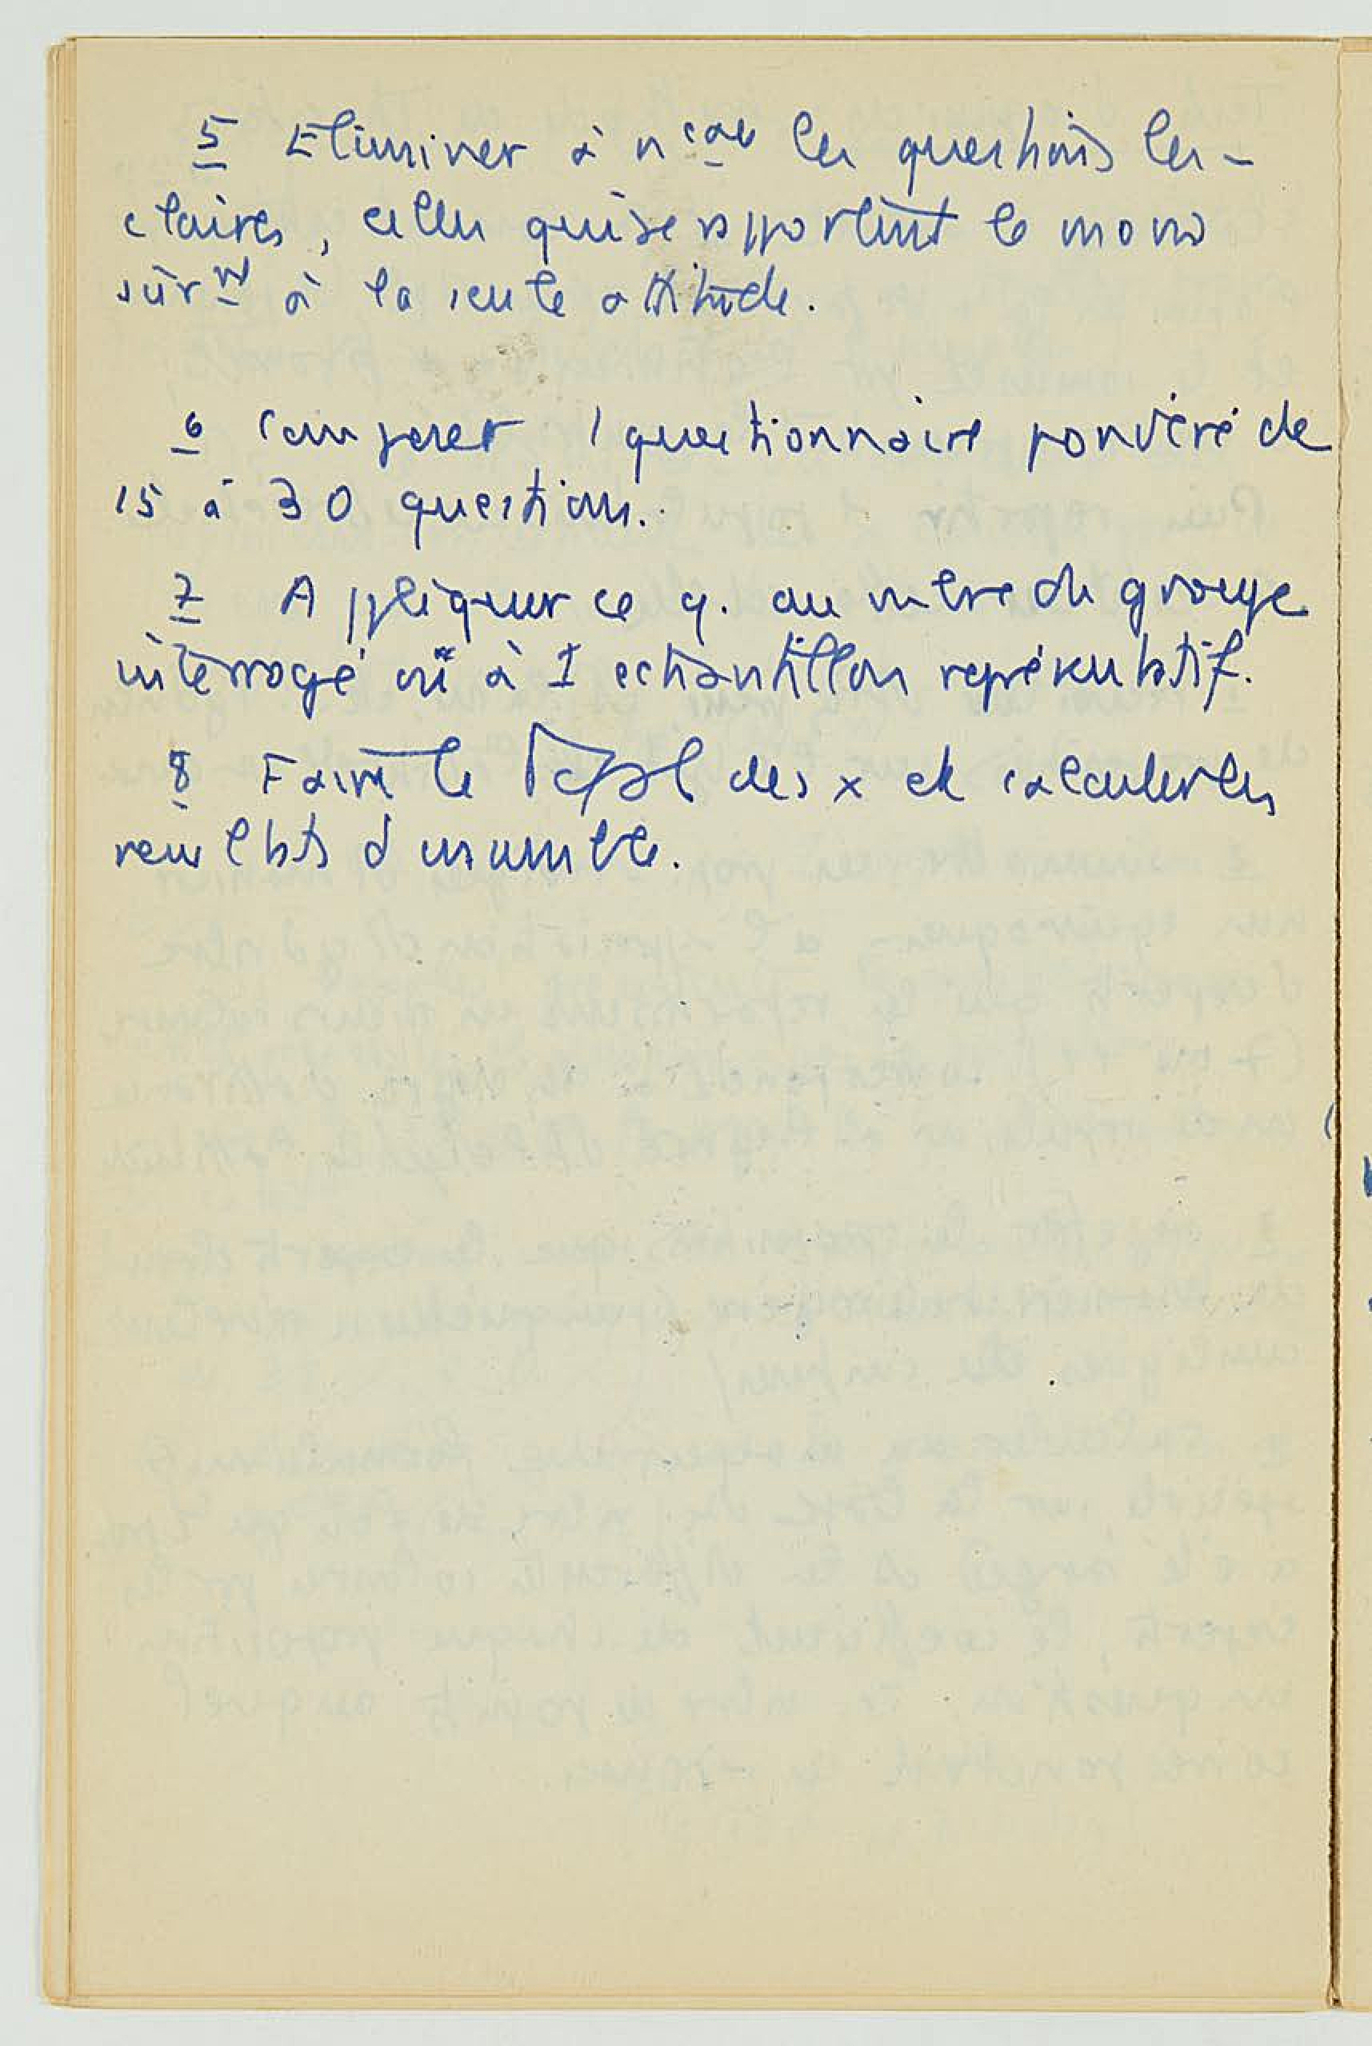 5 Eliminer à n^eau les questions les -
claires, celles qui se rapportent le moins
sûr^nt à la seule attitude.
6 Composer 1 questionnaire pondéré de
15 à 30 questions.
7 Appliquer ce q. au mbre du groupe
interrogé ou à 1 echantillon représentatif.
8 Faire le des x et calculer les
resultats d'ensemble.